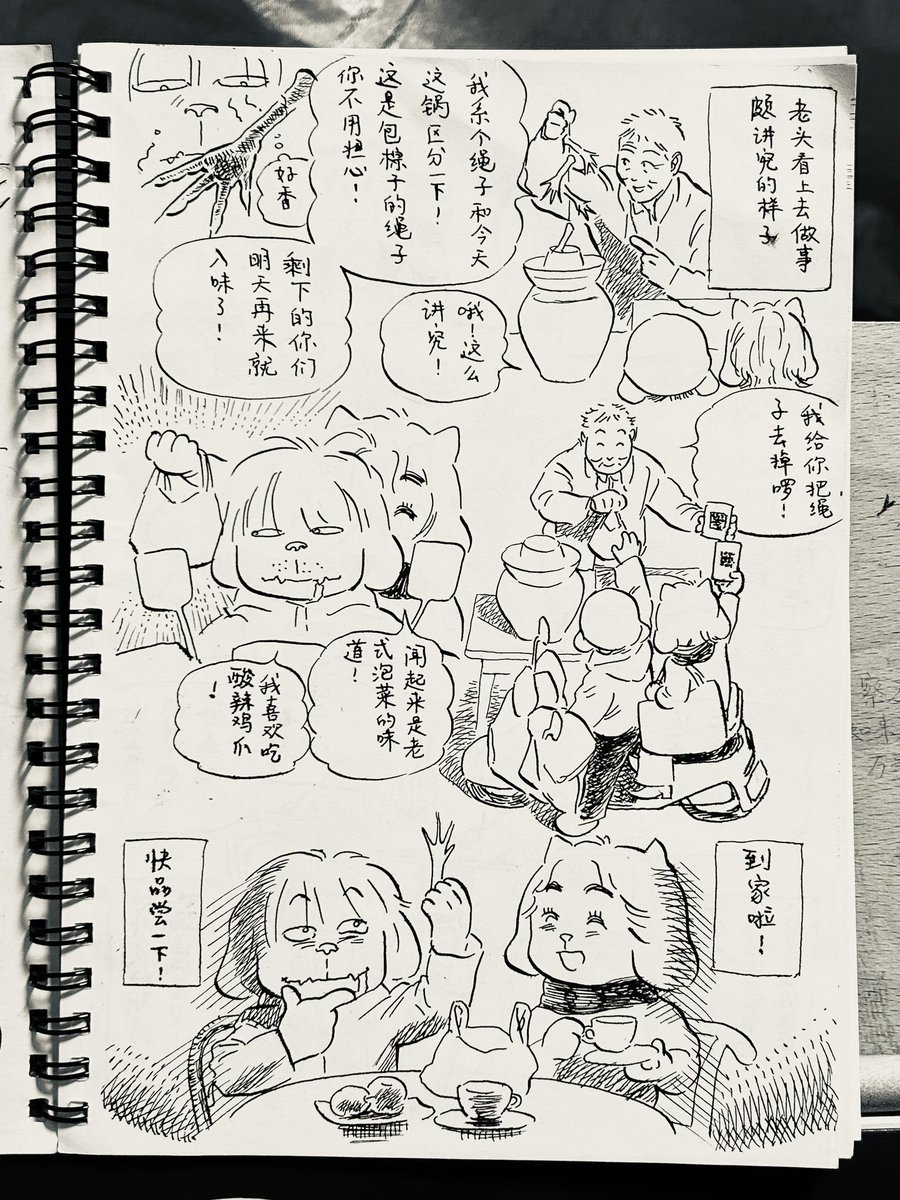 老头看上去做事
颇讲究的样子
我系个绳子和今天
这锅区分一下！
这是包粽子的绳子
你不用担心！
好香
剩下的你们
明天再来就
入味了！
哦！这么
讲究！
我给你把绳
子去掉啰！
闻起来是老
式泡菜的味
道！
我喜欢吃
酸辣鸡爪
！
到家啦！
快品尝一下！